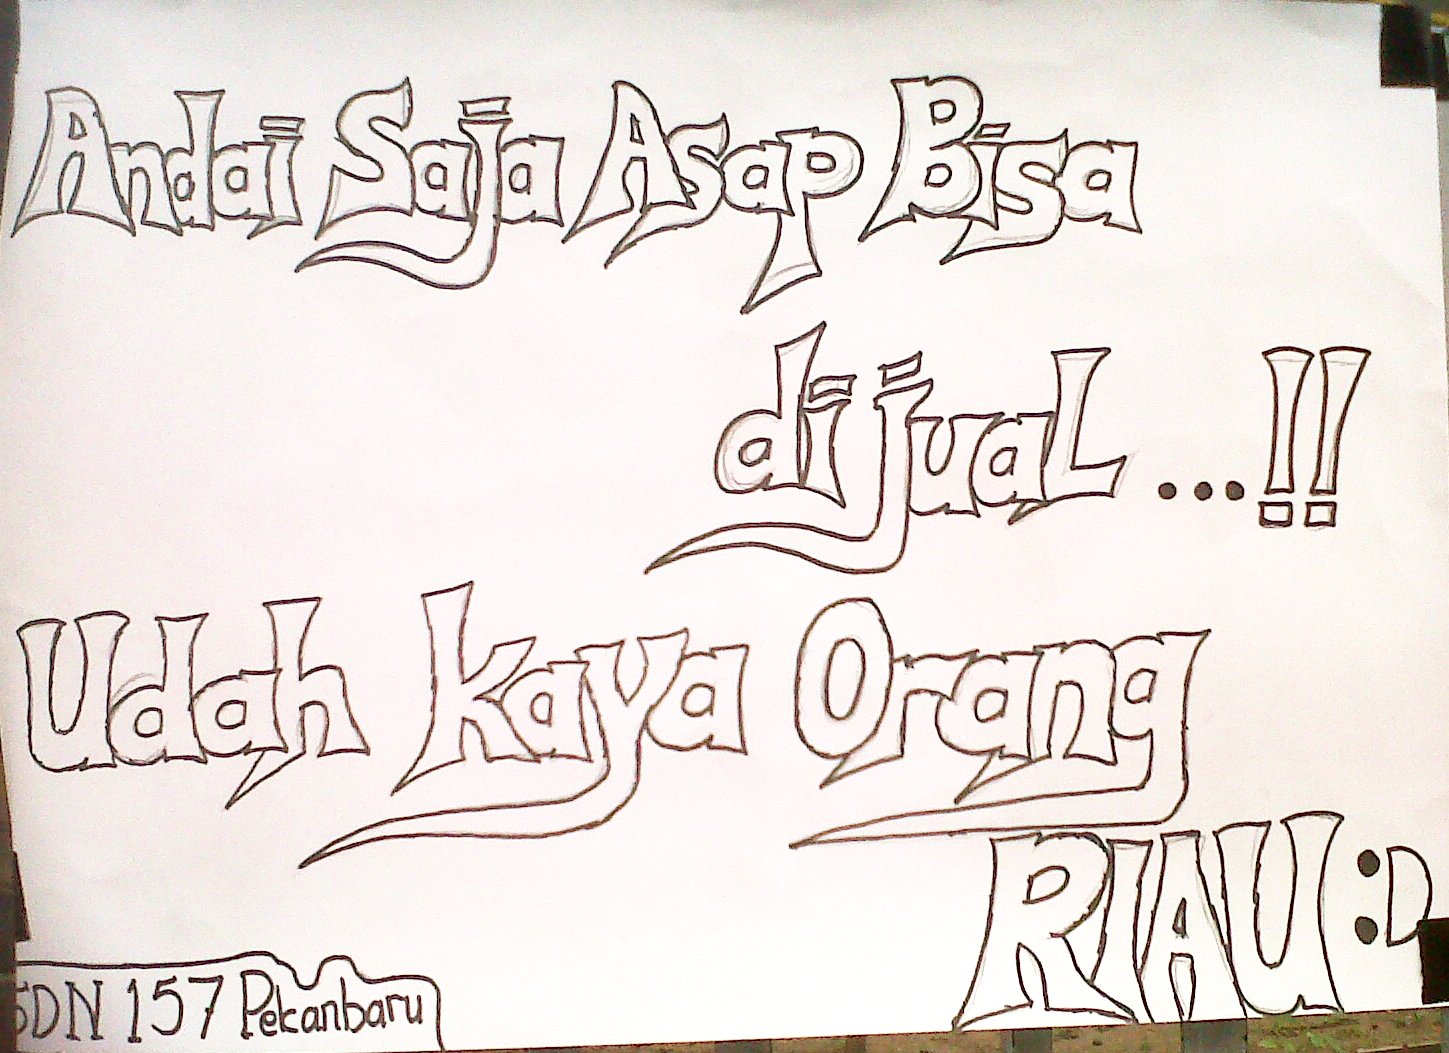 Andai Saja Asap Bisa
dijuaL...!!
Udah kaya Orang
RIAU :D
SDN 157 Pekanbaru